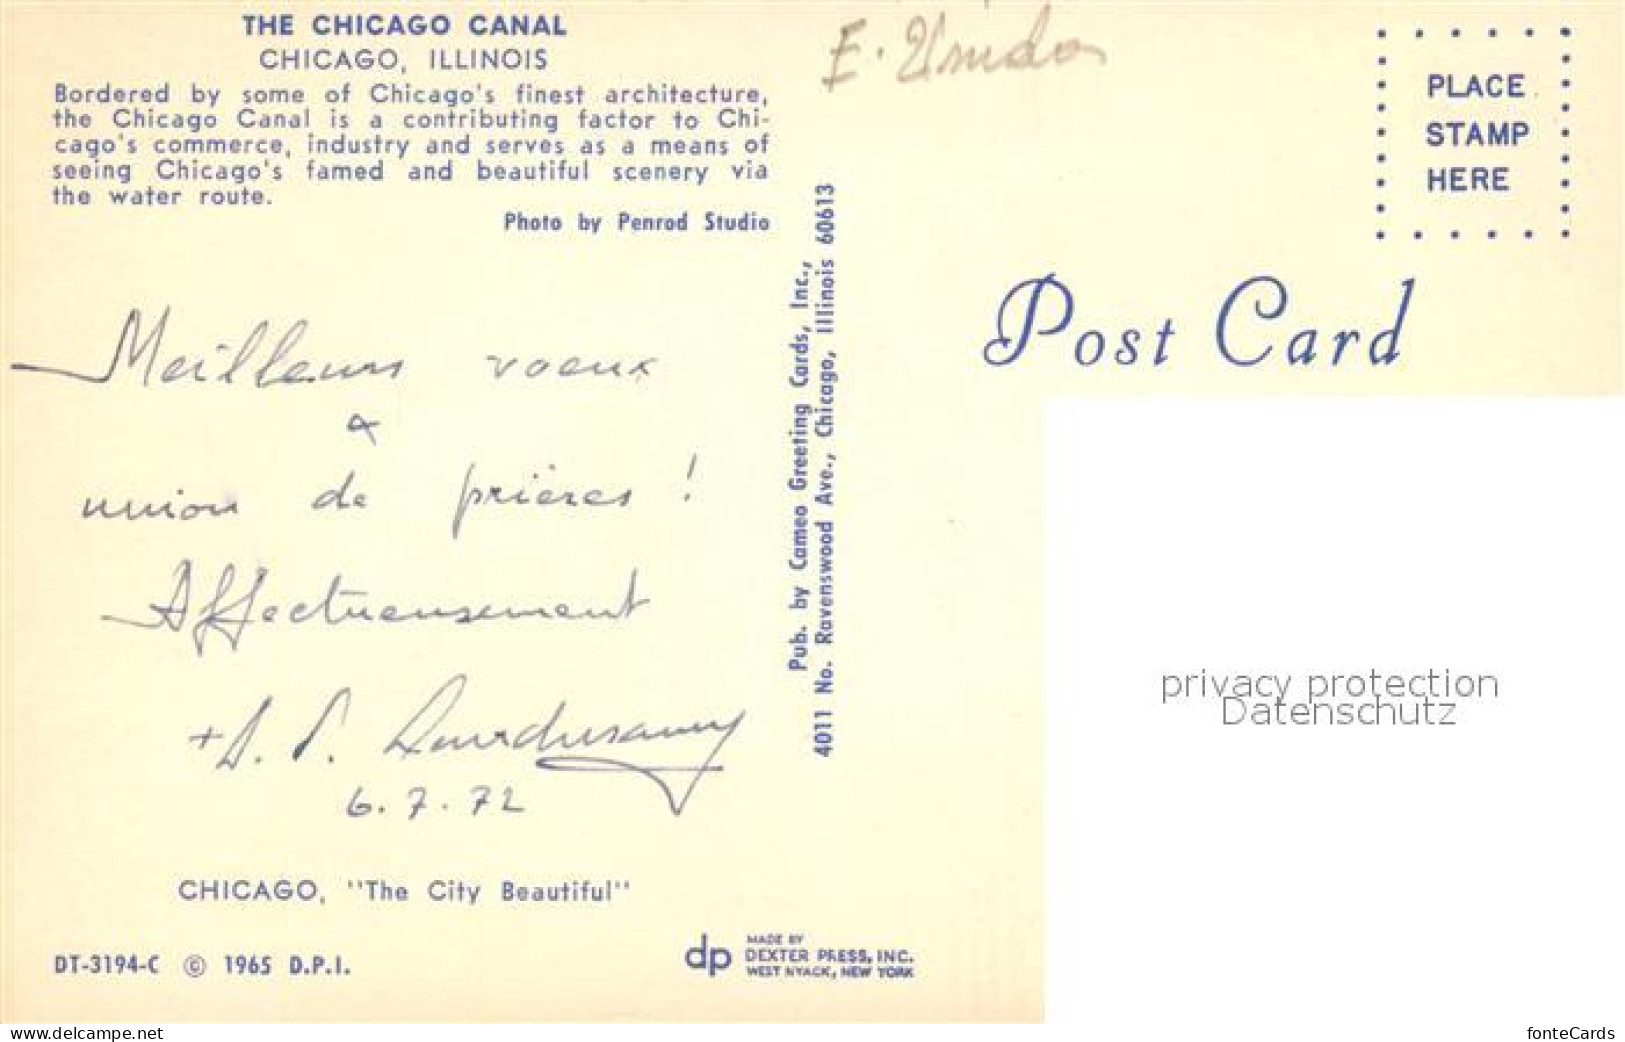 THE CHICAGO CANAL
CHICAGO, ILLINOIS
Bordered by some of Chicago's finest architecture,
the Chicago Canal is a contributing factor to Chi-
cago's commerce, industry and serves as a means of
seeing Chicago's famed and beautiful scenery via
the water route.
Photo by Penrod Studio
Meilleurs voeux
&
union de prières !
Affectueusement
+ D. S. Lourdusamy
6.7.72
CHICAGO, "The City Beautiful"
DT-3194-C © 1965 D.P.I.
dp
MADE BY
DEXTER PRESS, INC.
WEST NYACK, NEW YORK
Pub. by Cameo Greeting Cards, Inc.,
4011 No. Ravenswood Ave., Chicago, Illinois 60613
E. Unidos
PLACE
STAMP
HERE
Post Card
privacy protection
Datenschutz
www.delcampe.net
fonteCards